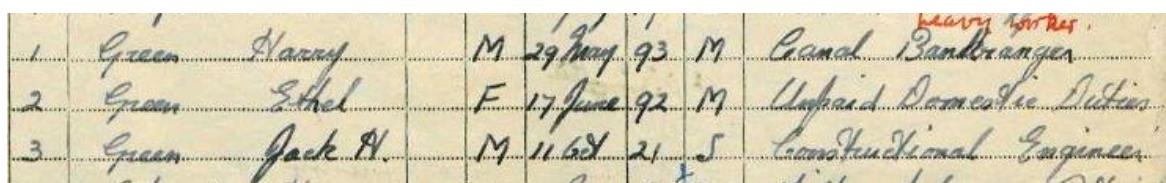 heavy worker.
1 Green Harry M 29 May 93 M Canal Bankranger
2 Green Ethel F 17 June 92 M Unpaid Domestic Duties
3 Green Jack H. M 11 Oct 21 S Constructional Engineer